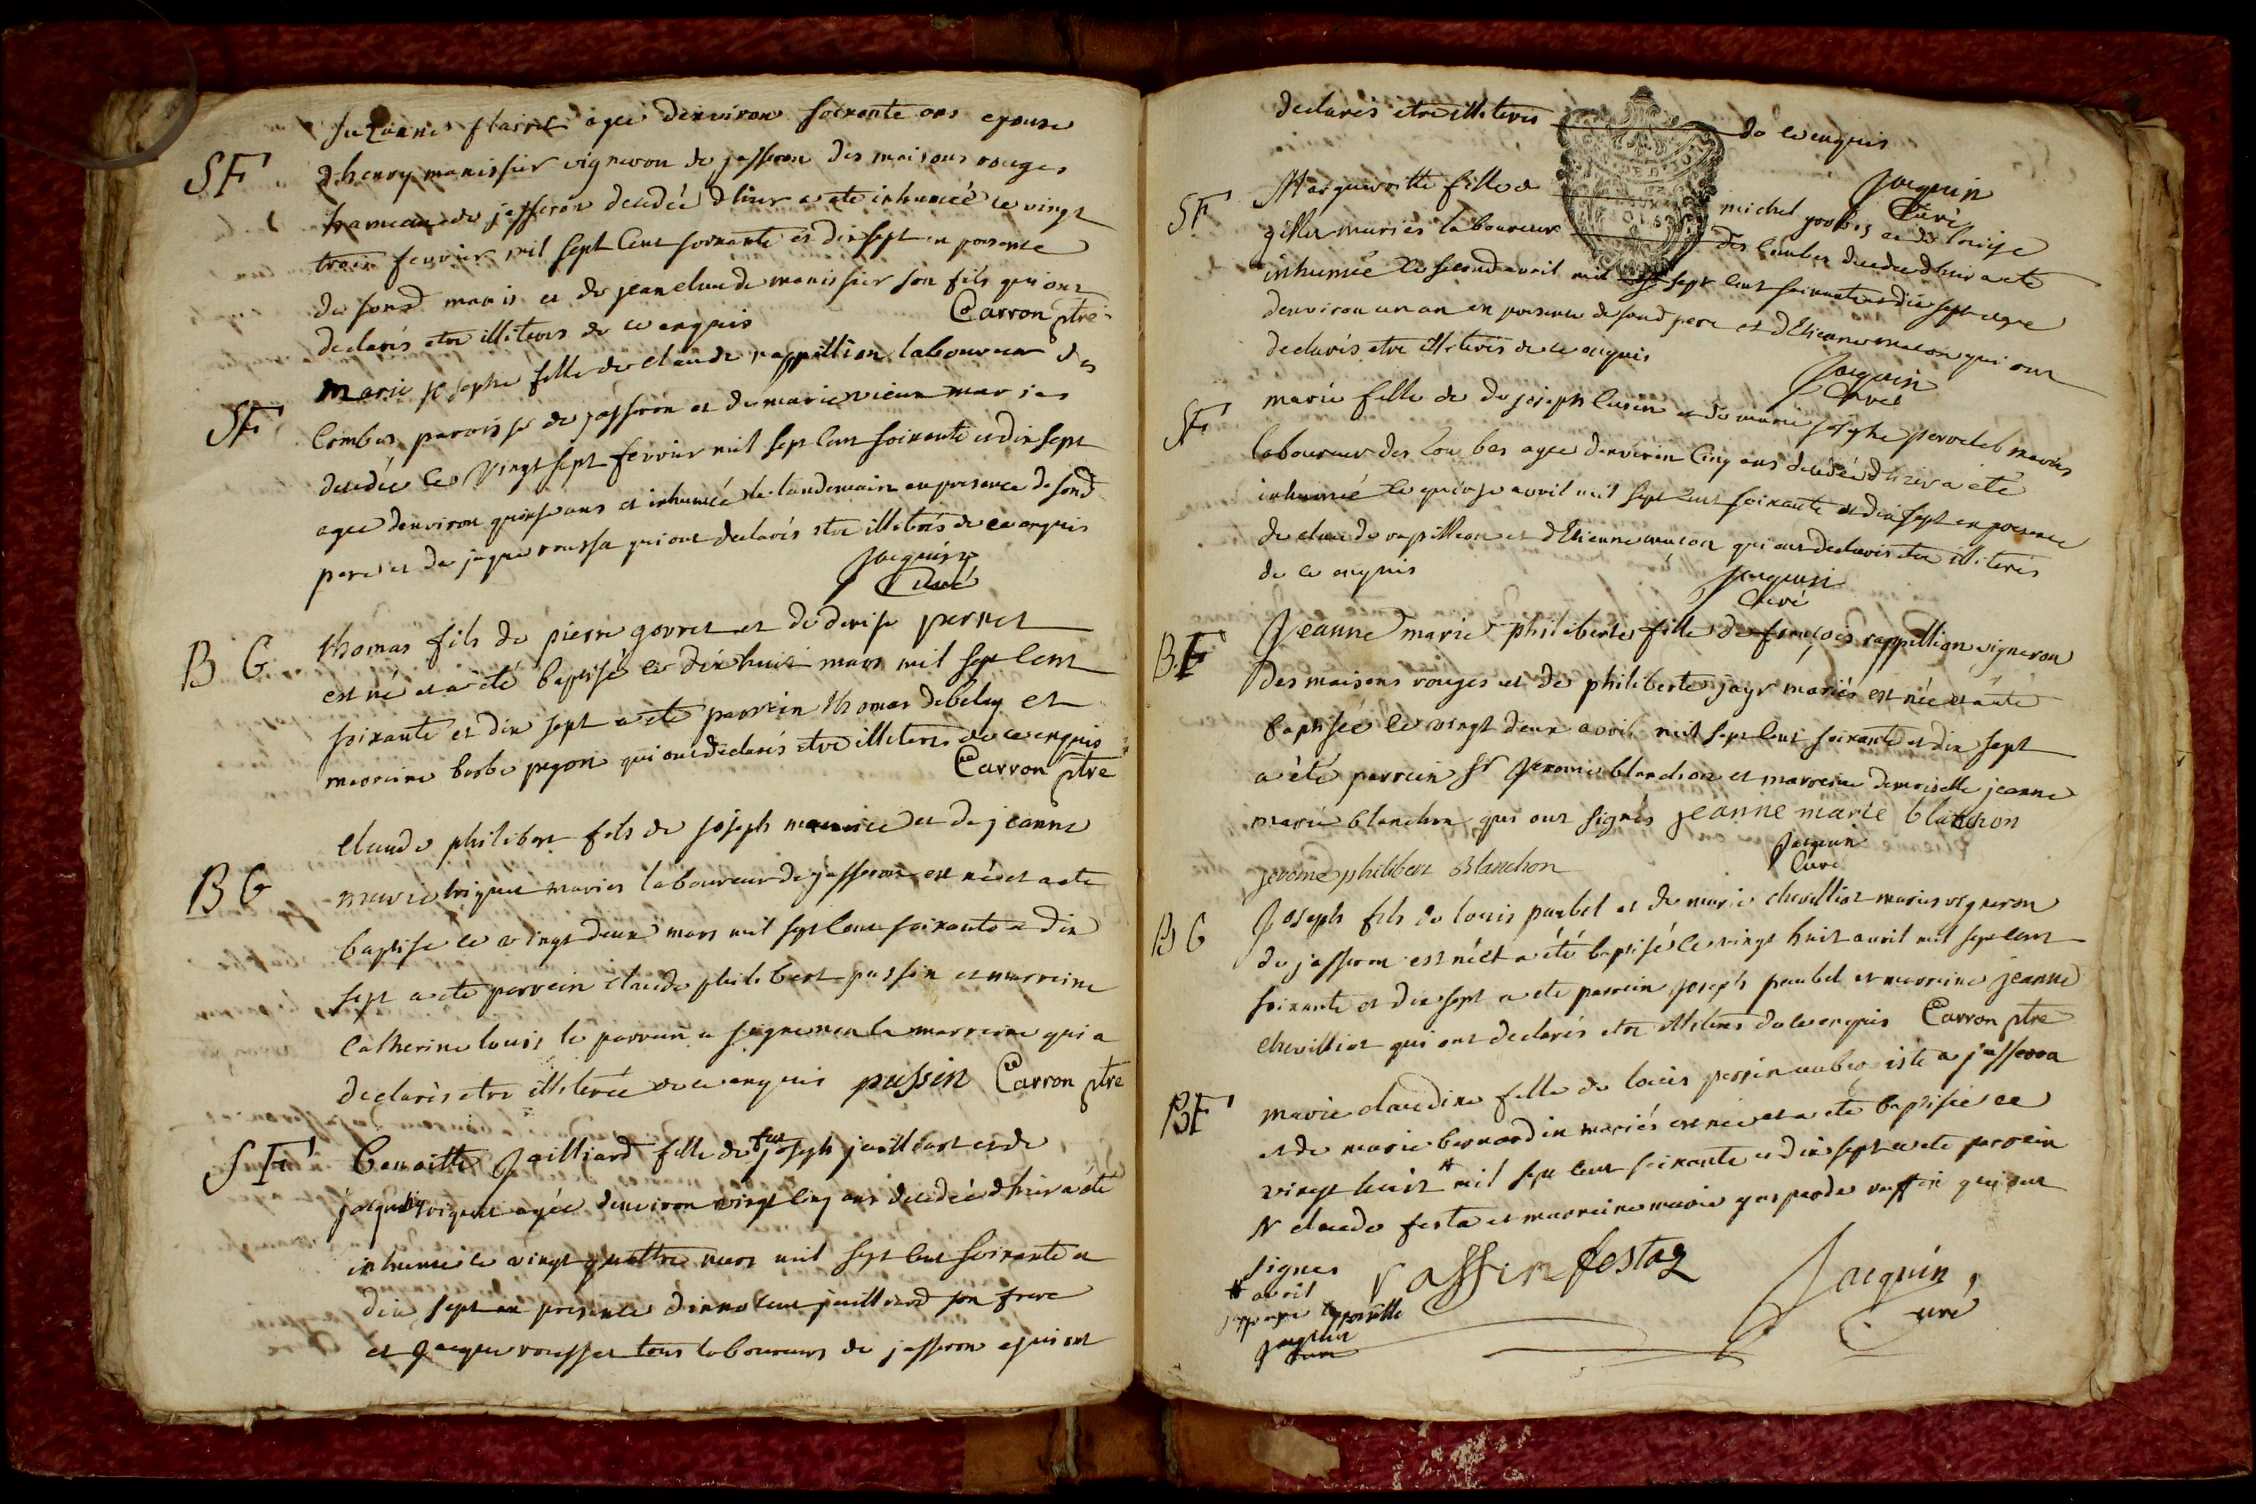 SF
Suzanne flairet agée denviron soixante ans epouse
dhenry manissier vigneron de jasseron des maisons rouges
hameau de jasseron decedée dhier a ete inhumée le vingt
trois fevrier mil sept cent soixante et dix sept en presence
du sousd maris et de jean claude manissier son fils qui ont
declarés etre illiteres de ce enquis Carron ptre
SF
Marie josephe fille de claude rappillion laboureur des
Combes paroisse de jasseron et de marie vieux maries
decedée le vingt sept fevrier mil sept cent soixante et dix sept
agee denviron quinse ans et inhumée le landemain en presence de sousd
pere et de jaque roussa qui ont declarés etre illiterés de ce enquis
Jacquin
Curé
B G
thomas fils de pierre gorret et de denise perret
est né et a été baptisé le dix huit mars mil sept cent
soixante et dix sept a ete parrein thomas debeley et
marreine barbe pegon qui ont declarés etre illiteres de ce enquis
Carron ptre
B G
claude philibert fils de joseph maurice et de jeanne
marie triquet maries laboureur de jasseron est né et a ete
baptise le vingt deux mars mil sept cent soixante et dix
sept a ete parrein claude philibert pussin et marreine
Catherine louis le parrein a signe non la marreine qui a
declarés etre illiterée de ce enquis pussin Carron ptre
SF
Benoitte Jailliard fille de feu joseph jailliard et de
jaqueline triquet agée denviron vingt cinq ans decedée dhier a été
inhumée le vingt quattre mars mil sept cent soixante et
dix sept en presence dinnocent jailliard son frere
et Jacque rousset tous laboureurs de jasseron qui ont
declarés etre illiterés de ce enquis
Jacquin
Curé
SF
Margueritte fille de michel et de louise
gillier mariés laboureur des Combes decedee dhier a ete
inhumée le second avril mil sept cent soixante et dix sept agee
denviron un an en presence de sousd pere et dEtienne macon qui ont
declarés etre illiterés de ce enquis
Jacquin
Curé
SF
marie fille de joseph cusin et de marie josephe perodeb mariés
laboureur des Combes agee denviron Cinq ans decedée dhier a été
inhumée le quinse avril mil sept cent soixante et dix sept en presence
de claude rapillion et dEtienne macon qui ont declarés etre illiterés
de ce enquis
Jacquin
Curé
B F
Jeanne marie philiberte fille de françois rappillion vigneron
des maisons rouges et de philiberte jayr mariés est née et a ete
baptisée le vingt deux avril mil sept cent soixante et dix sept
a été parrein Sr Jerome blanchon et marreine demoiselle jeanne
marie blanchon qui ont signés jeanne marie blanchon
jerome philibert Blanchon
Jacquin
Curé
B G
Joseph fils de louis paubel et de marie chevilliot maries vigneron
de jasseron est né et a été baptisé le vingt huit avril mil sept cent
soixante et dix sept a ete parrein joseph paubel et marreine jeanne
chevilliot qui ont declarés etre illiteres de ce enquis Carron ptre
BF
marie claudine fille de louis perrin aubergiste a jasseron
et de marie bernardin mariés est née et a eté baptisée le
vingt huit # mil sept cent soixante et dix sept a ete parrein
Sr claude festa et marreine marie gasparde vaffin qui ont
signes Vaffin festaz
# avril
Jacquin
Curé
Jacquin
Curé